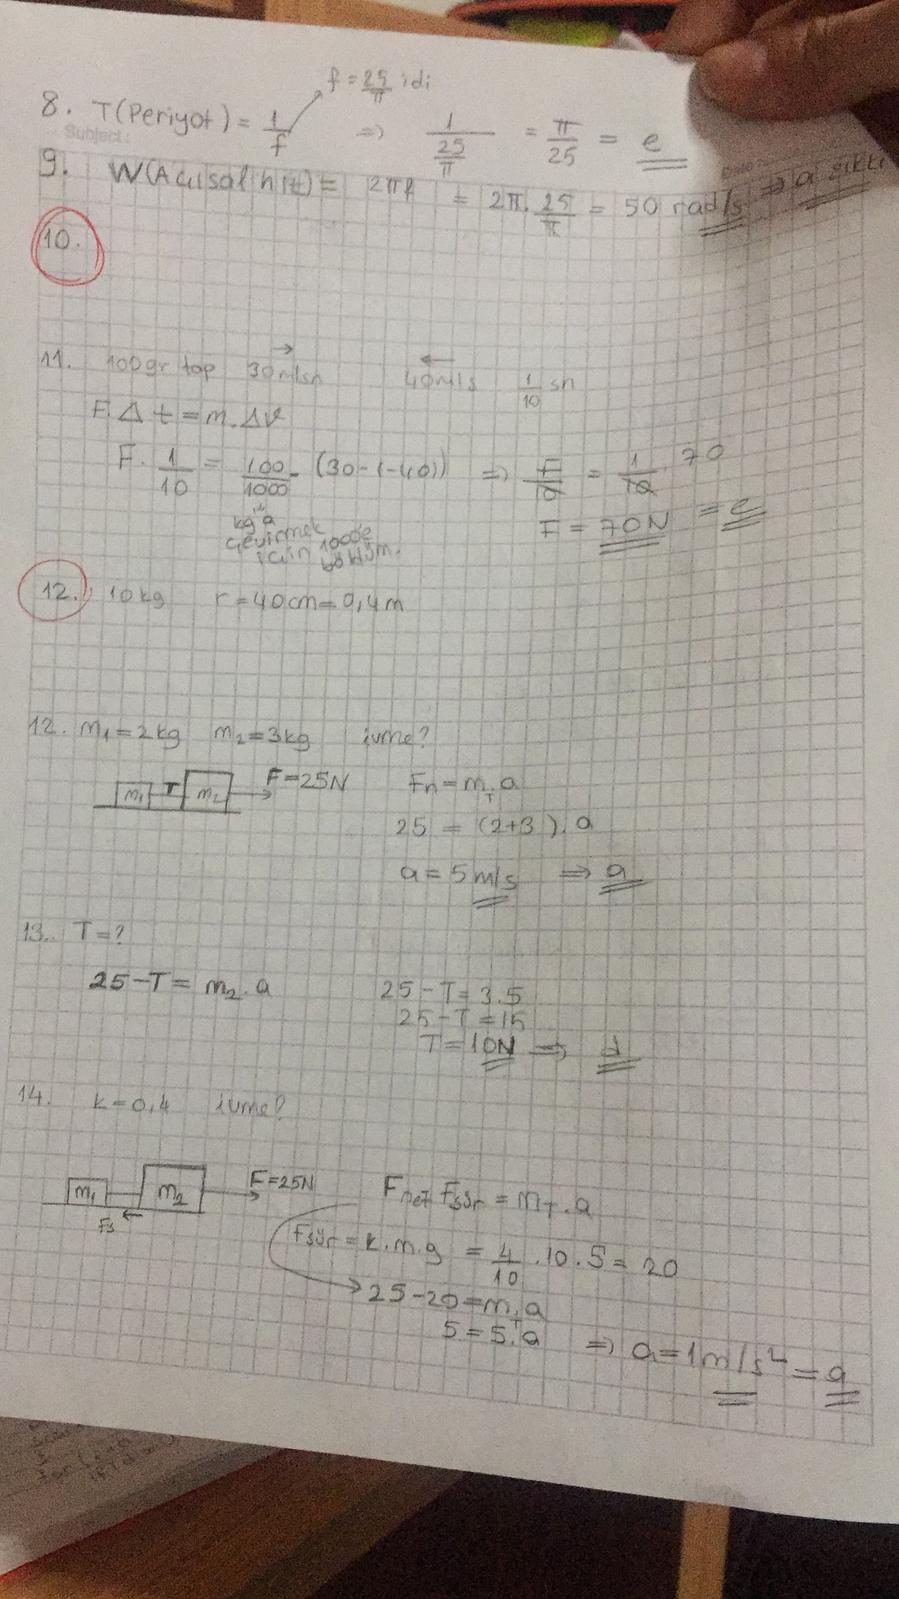 f = 25/π idi
8. T(Periyot) = 1/f ⇒ 1/(25/π) = π/25 = e
Subject:
9. W(Açısal hız) = 2πf = 2π.25/π = 50 rad/s ⇒ a şıkkı
10.
11. 100gr top 30m/sn → 40m/s ← 1/10 sn
F.Δt = m.ΔV
F. 1/10 = 100/1000 . (30-(-40)) ⇒ F/10 = 1/10 . 70
kg'a
çevirmek
için 1000e
böldüm.
F = 70N = e
12. 10kg r=40cm=0,4m
12. m₁=2kg m₂=3kg ivme?
m₁ T m₂ F=25N
Fn = m_T.a
25 = (2+3).a
a = 5m/s ⇒ a
13. T=?
25-T = m₂.a 25-T=3.5
25-T=15
T=10N ⇒ d
14. k=0,4 ivme?
m₁ m₂ F=25N
Fs ←
Fnet Fsür = m_T.a
Fsür = k.m.g = 4/10 .10.5 = 20
25-20 = m_T.a
5 = 5.a ⇒ a=1m/s² = a